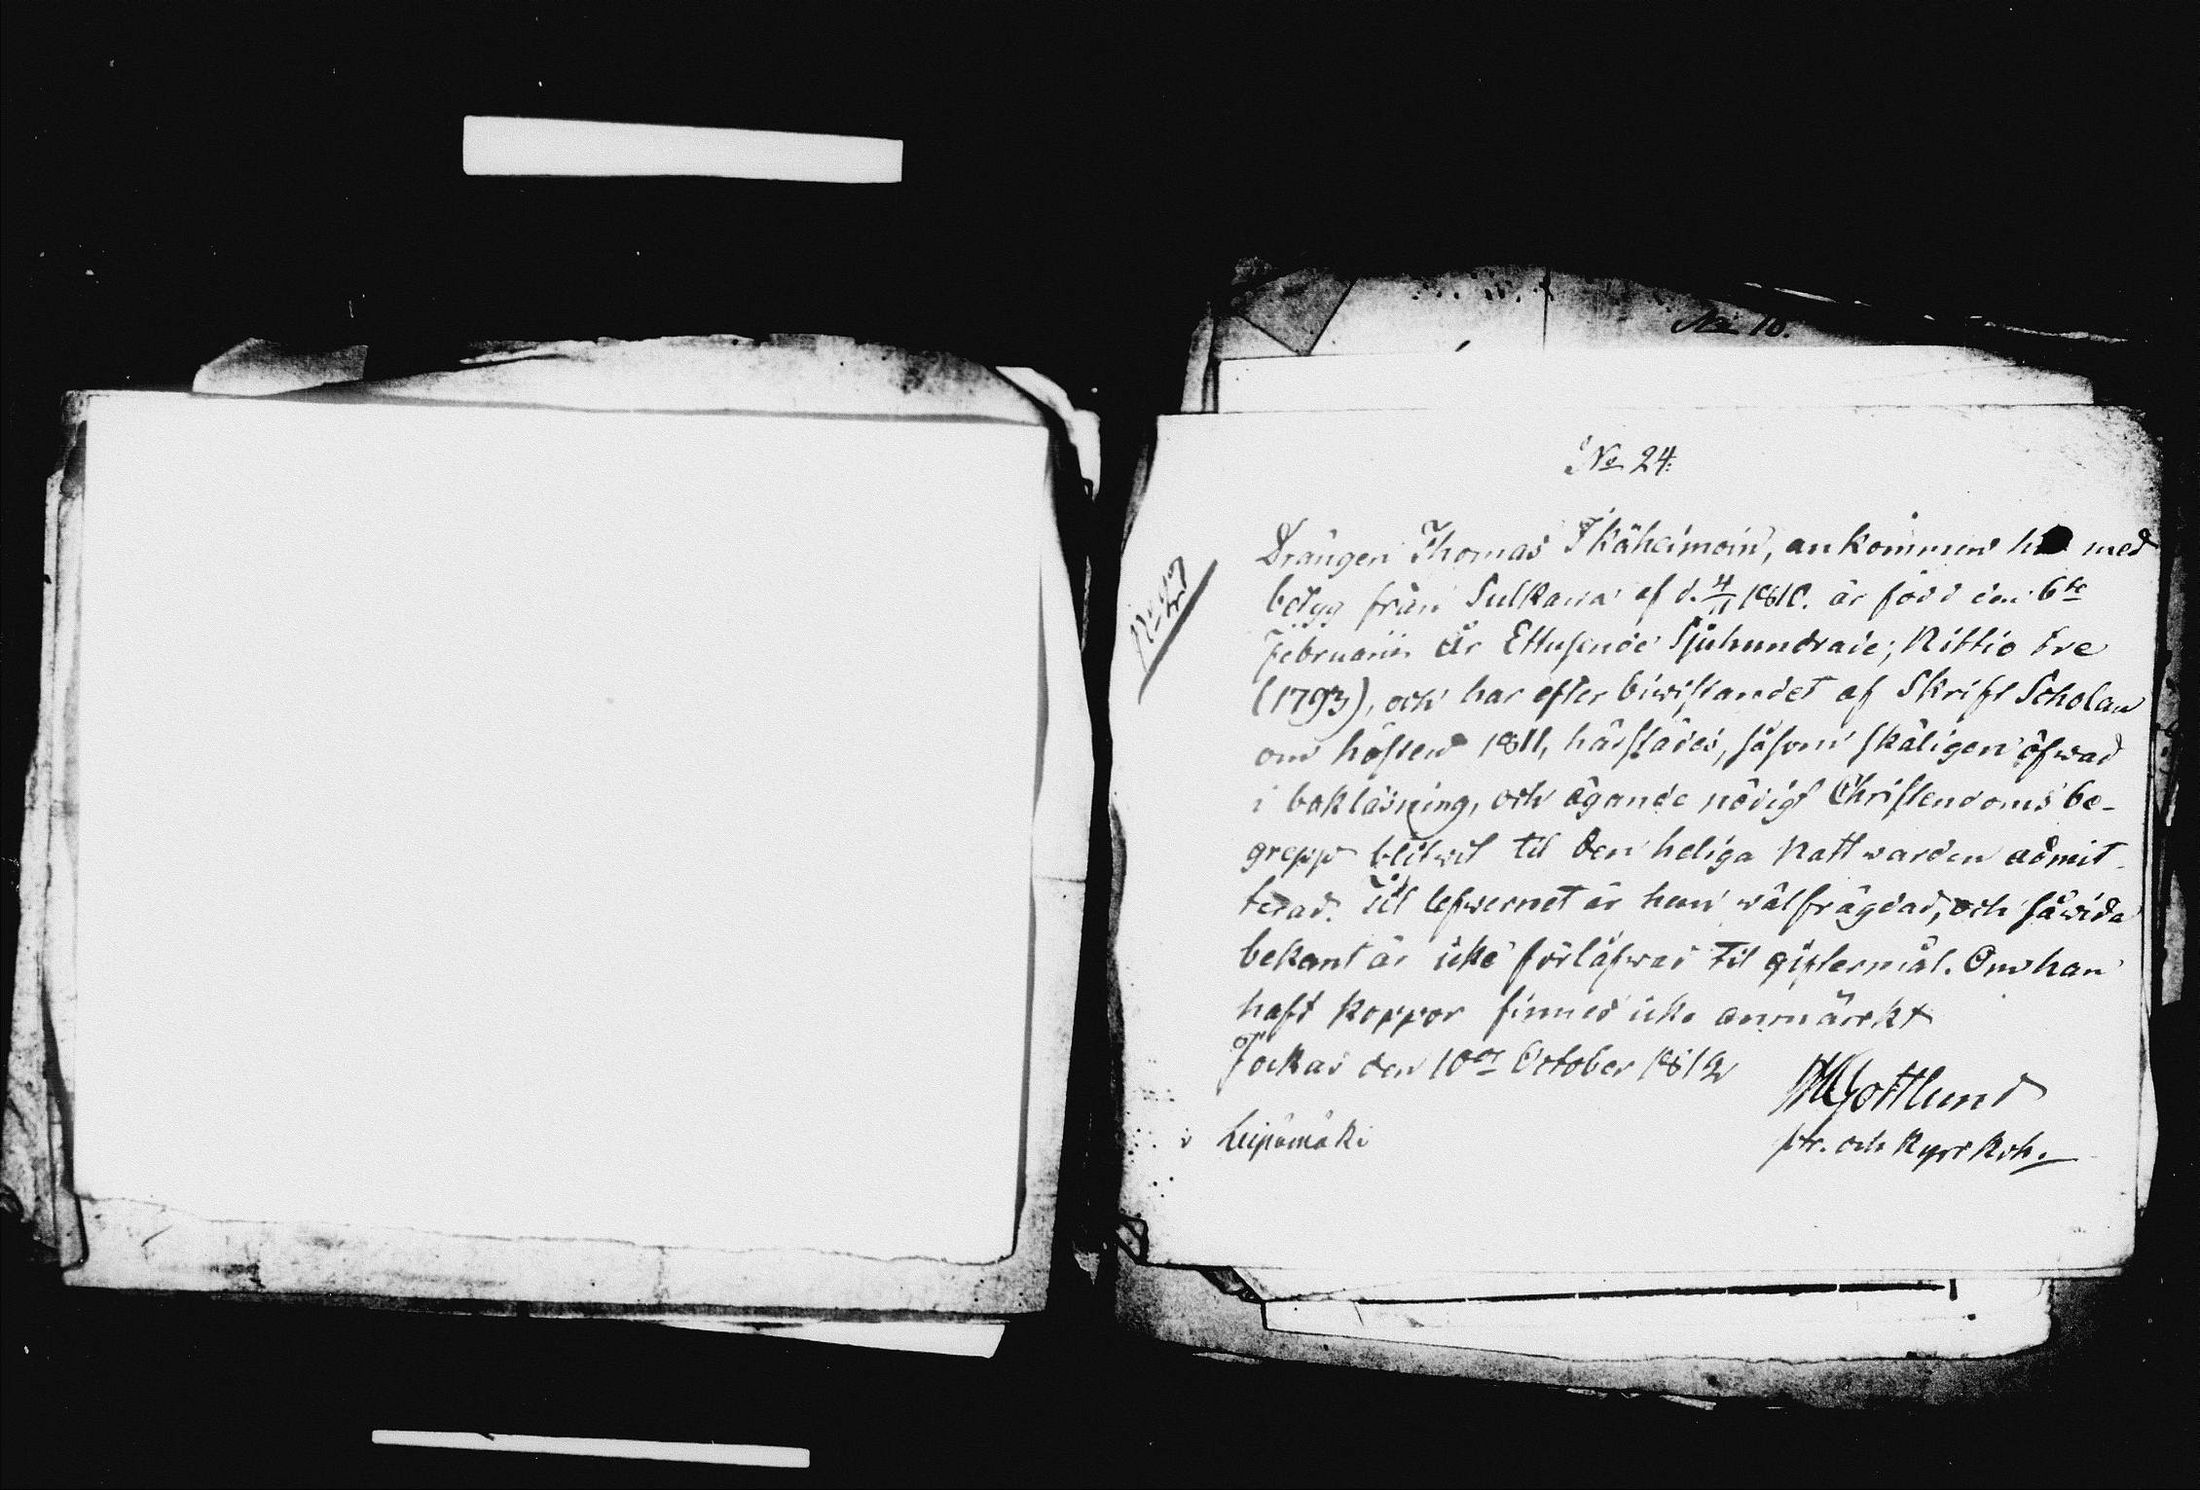 No 10.
No 24.
Drängen Thomas Ikäheimoin, ankommen hit med
betyg från Sulkava af d. 4/11 1810. är född den 6te
Februarii År Ettusende Sjuhundrade, Nittio tre
(1793), och har efter biwistandet af Skrift Scholan
om hösten 1811, härstädes, såsom skäligen öfwad
i bokläsning, och ägande nödigt Christendoms be-
grepp blifwit til den heliga Nattwarden admit-
terad. Til lefwernet är han wälfrägdad, och såwida
bekant är icke förlofwad til giftermål. Om han
haft koppor finnes icke anmärkt
Jockas den 10de October 1812
Gottlund
i Leipämäki
ptr. och Kyrkoh.